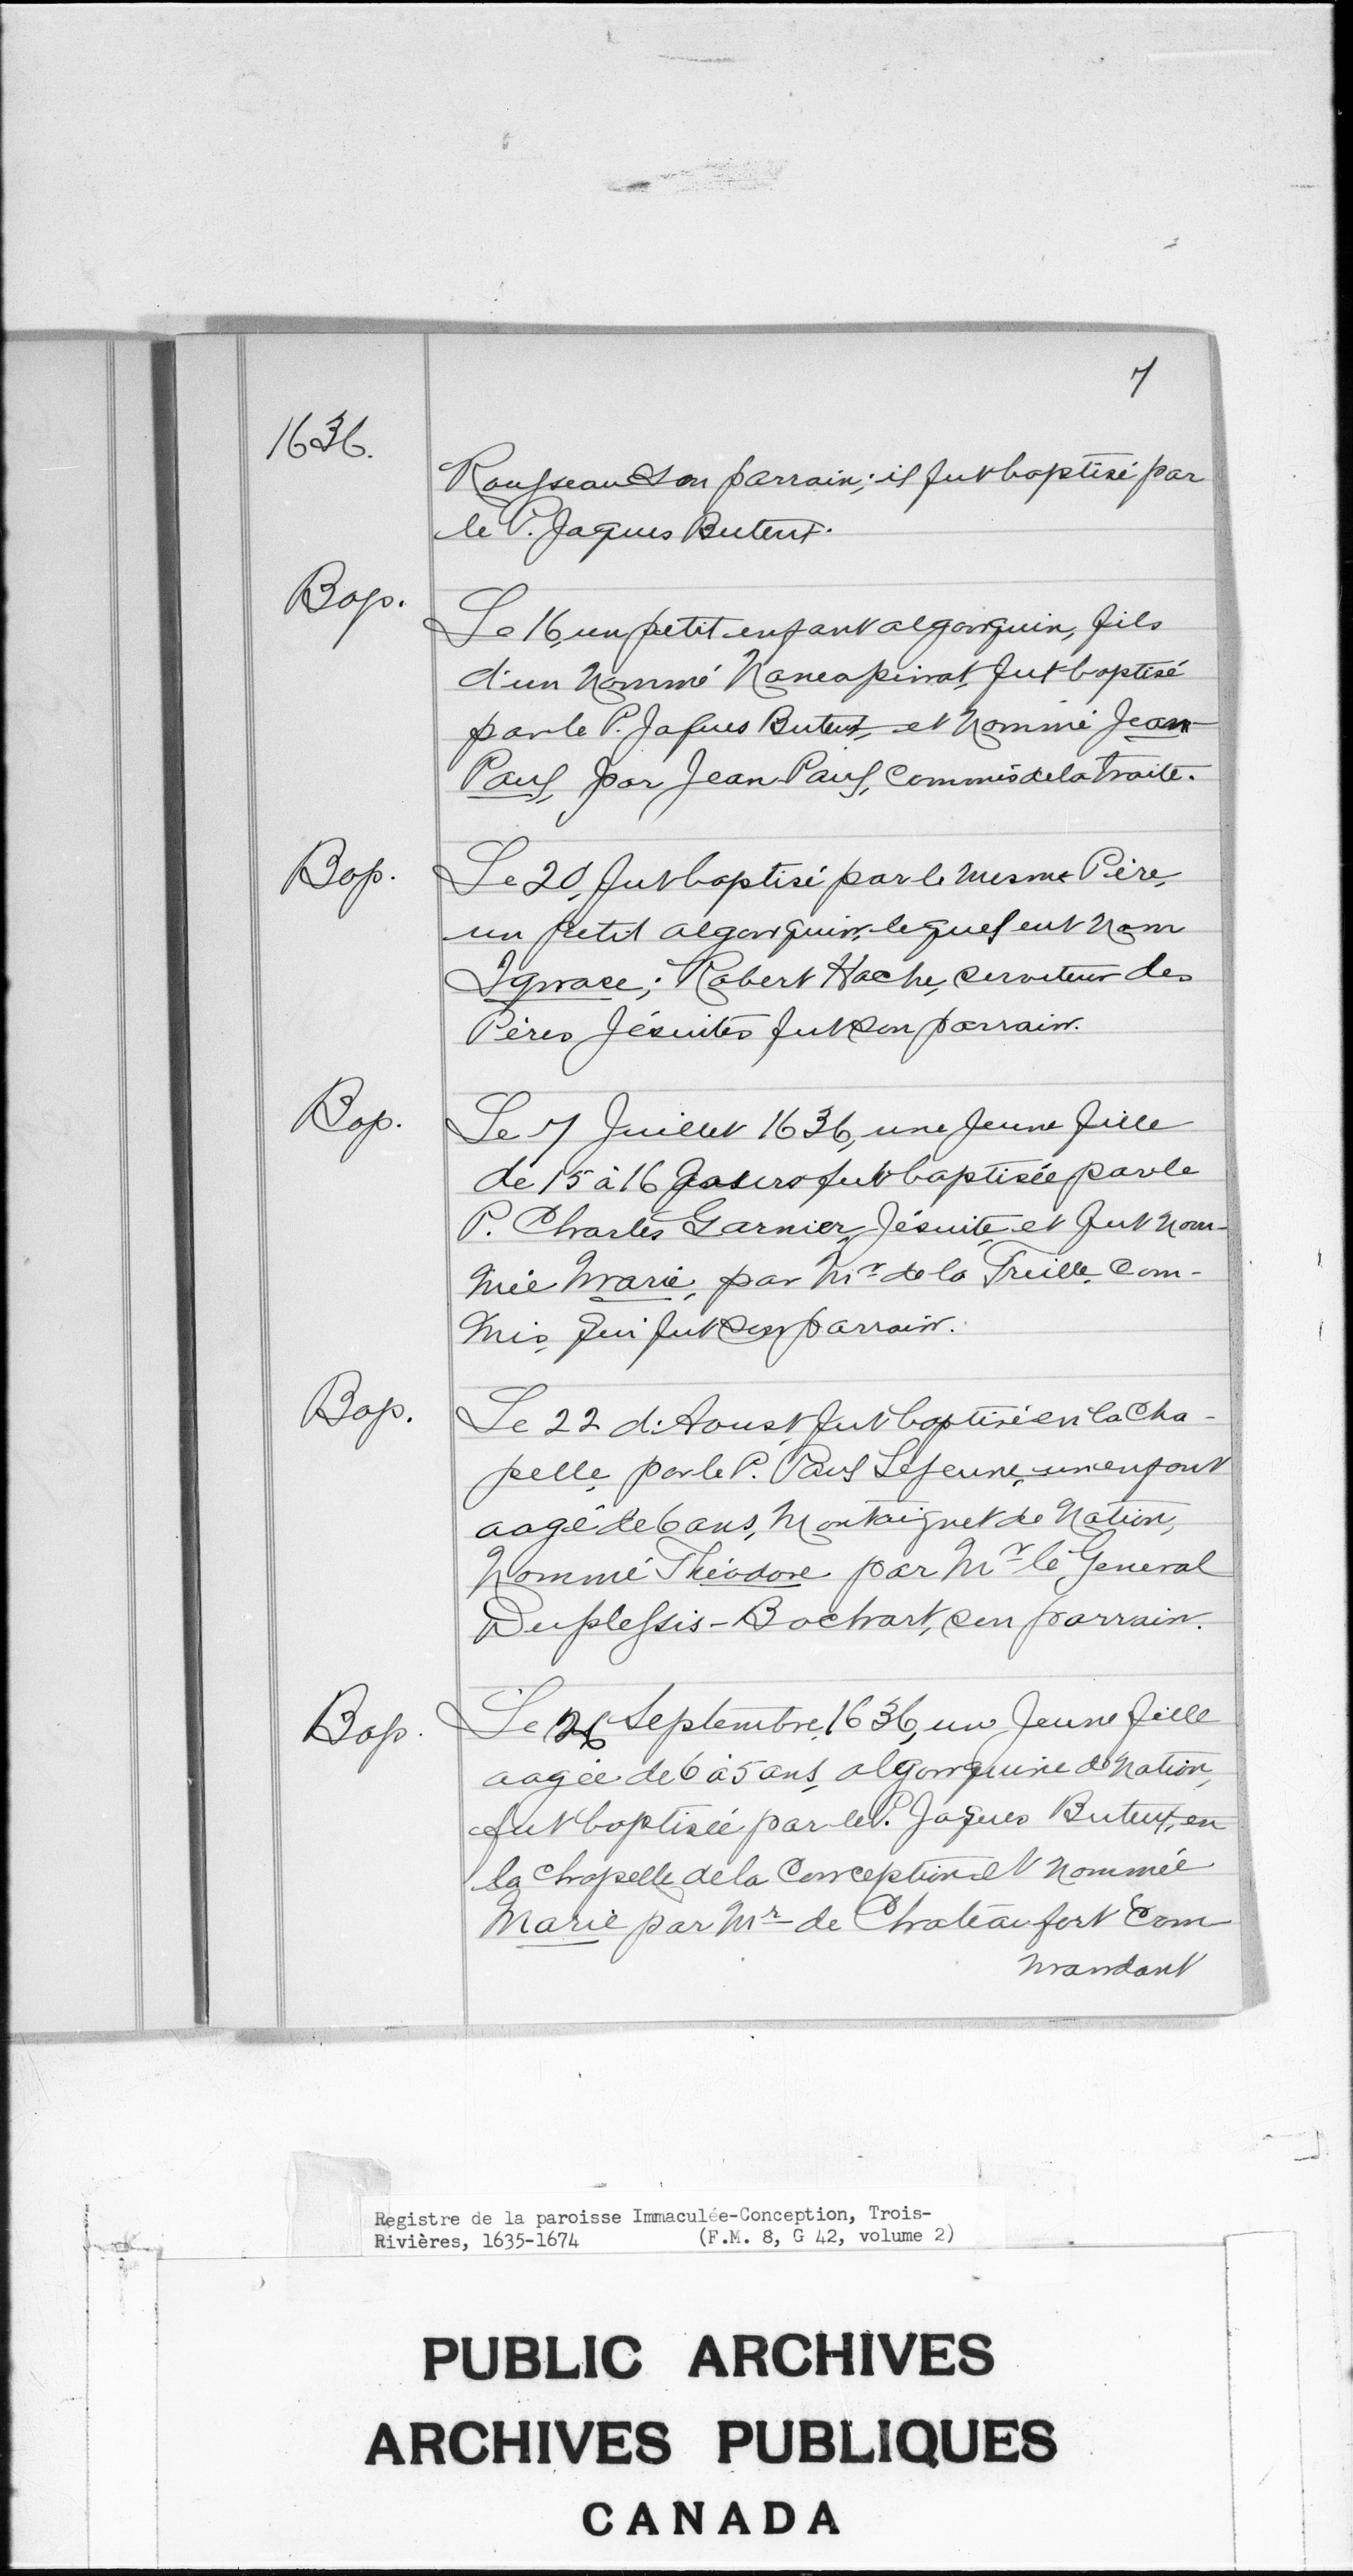 7
1636.
Rousseau son parrain; il fut baptisé par
le P. Jaques Buteux.
Bap.
Le 16, un petit enfant algonquin, fils
d'un nommé fut baptisé
par le P. Jaques Buteux, et nommé Jean
Paul, par Jean Paul, commis de la traite.
Bap.
Le 20, fut baptisé par le mesme Père,
un petit algonquin, lequel eut nom
Ignace; Robert Hache, serviteur des
Pères Jésuites fut son parrain.
Bap.
Le 7 Juillet 1636, une jeune fille
de 15 à 16 fut baptisée par le
P. Charles Garnier, Jésuite, et fut nom-
mée Marie, par Mr de la Treille, com-
mis, qui fut son parrain.
Bap.
Le 22 d'Aoust, fut baptisé en la Cha-
pelle, par le P. Paul Lejeune, un enfant
aagé de 6 ans, Montaignet de Nation,
Nommé Théodore par Mr le General
Duplessis-Bochart, son parrain.
Bap.
Le Septembre, 1636, une Jeune fille
aagée de 6 à 5 ans, algonquine de Nation,
fut baptisée par le P. Jaques Buteux, en
la chapelle de la Conception et nommée
Marie par Mr de Chateaufort Com
mandant
Registre de la paroisse Immaculée-Conception, Trois-
Rivières, 1635-1674 (F.M. 8, G 42, volume 2)
PUBLIC ARCHIVES
ARCHIVES PUBLIQUES
CANADA